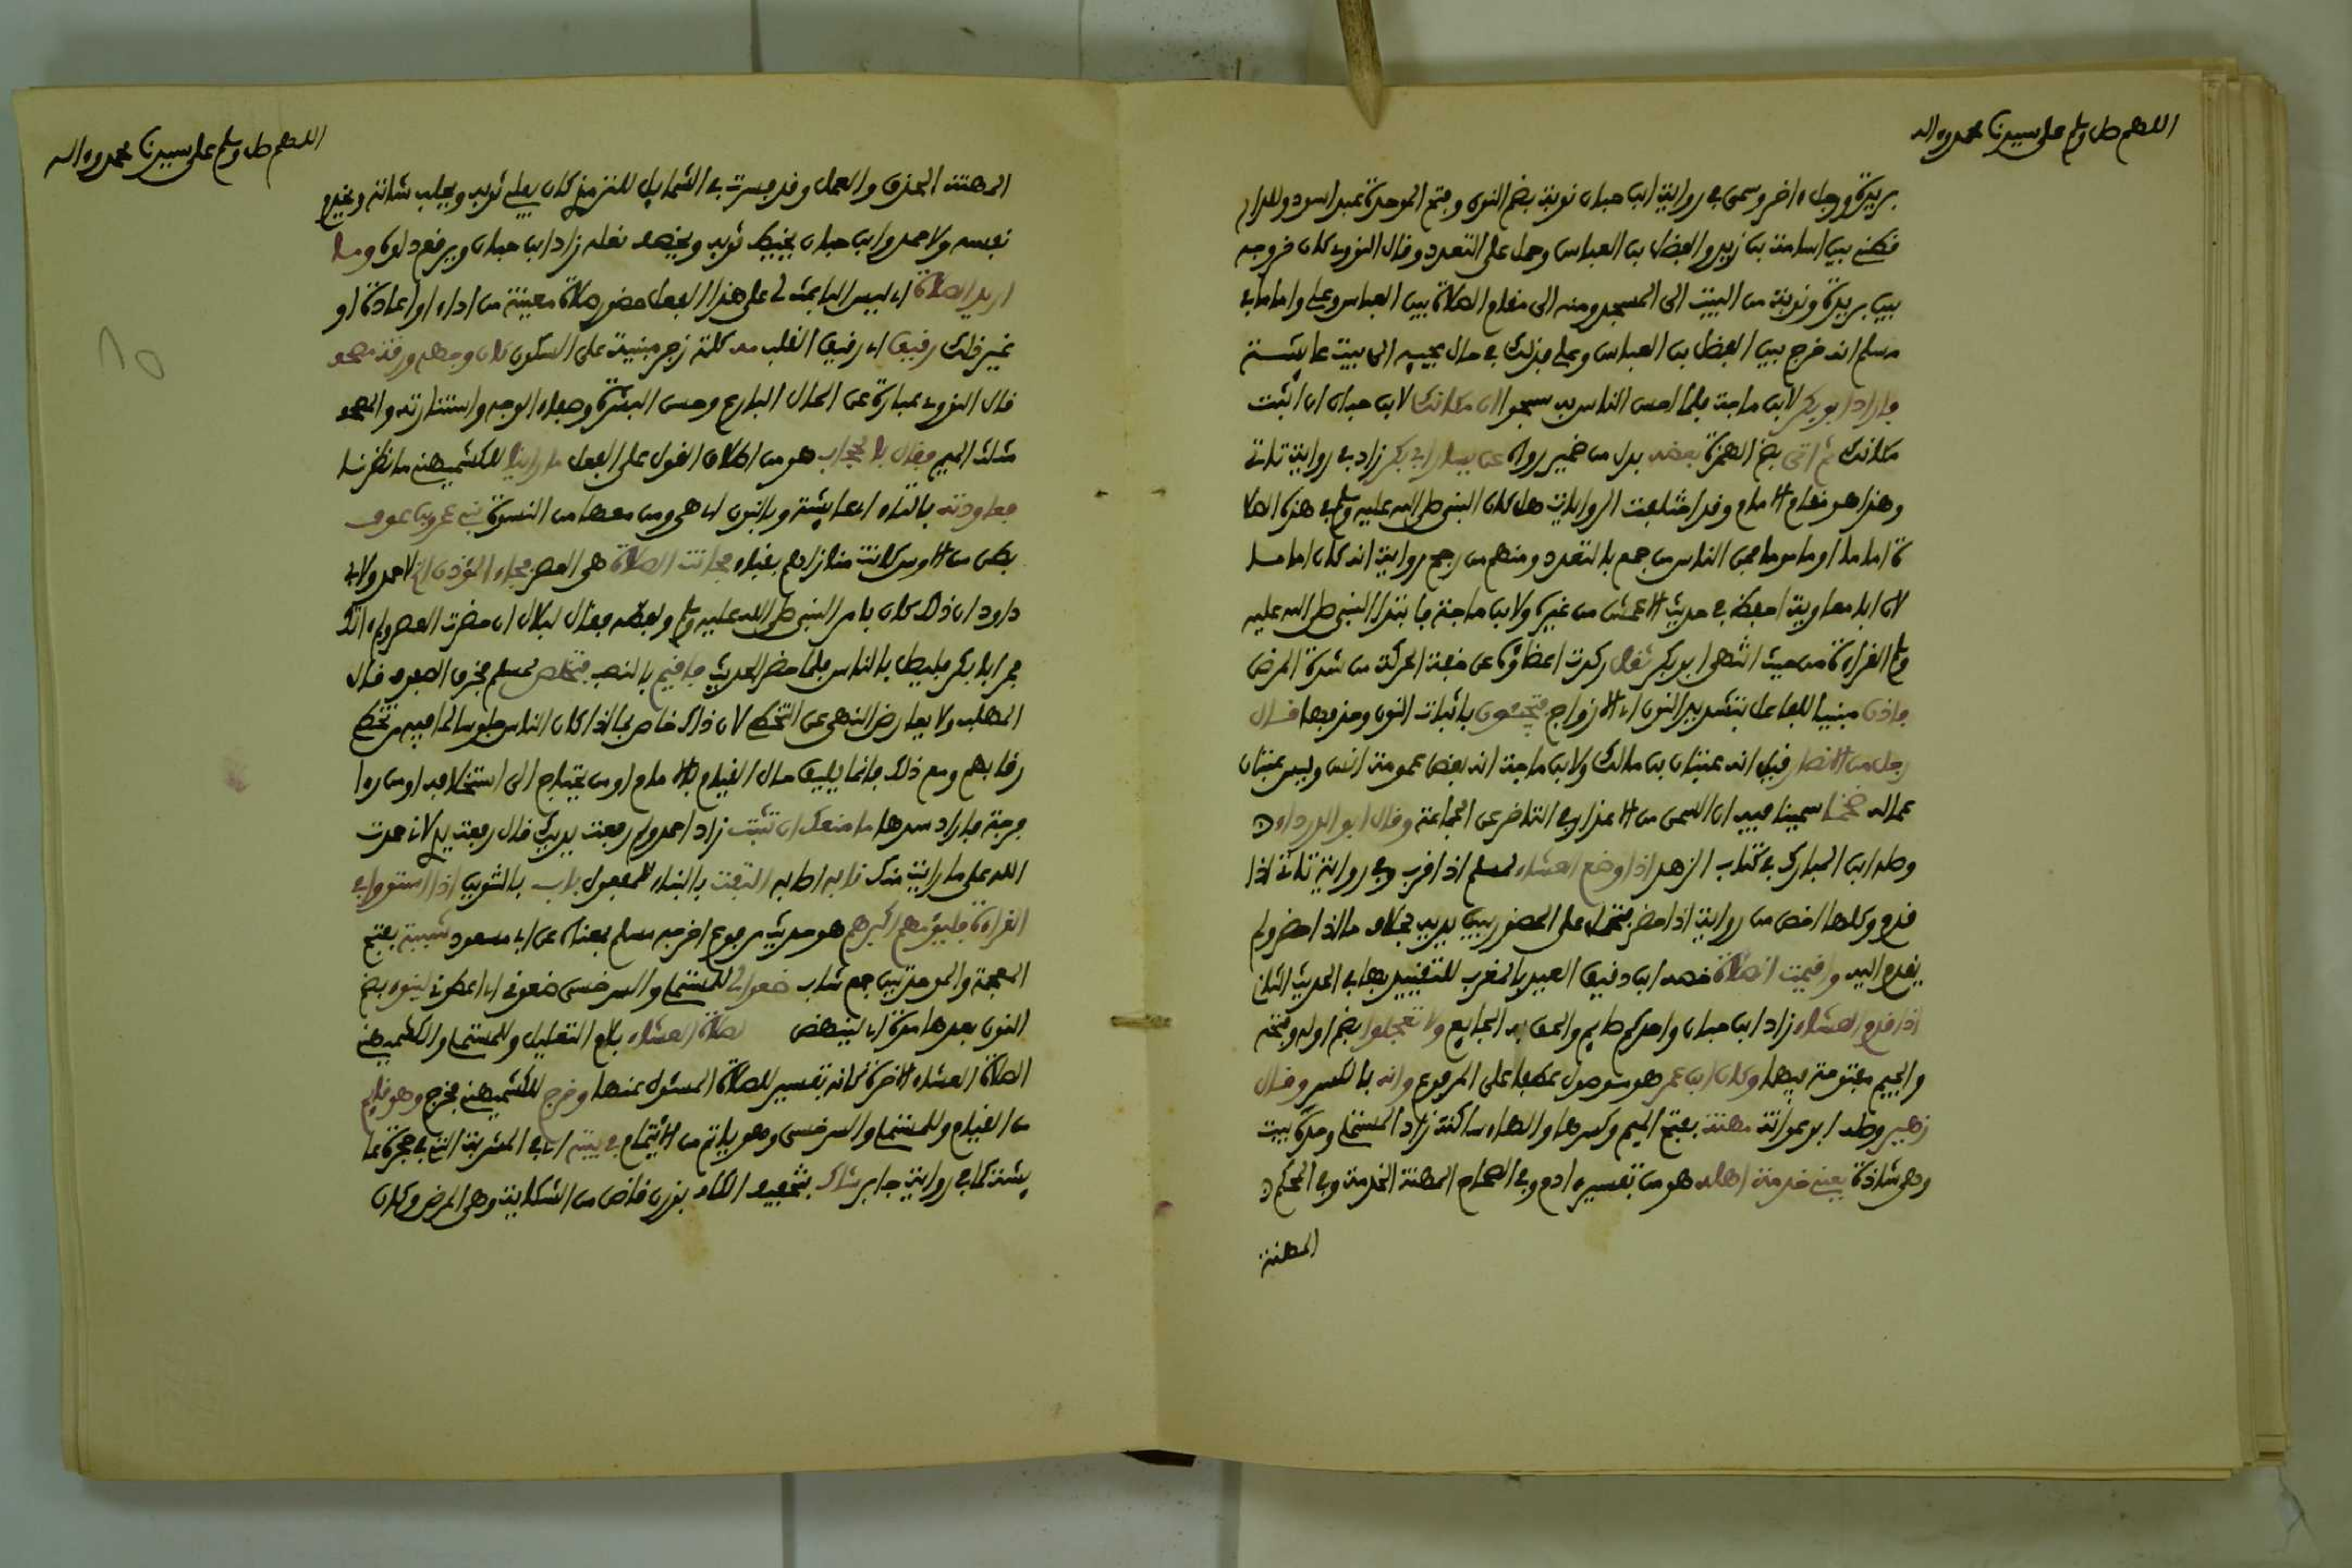 اللهم صل وسلم على سيدنا محمد واله
بريرة ورجل ءاخر وسمى في رواية ابن حبان نوبة بضم النون وفتح الموحدة عبد اسود وللدار
قطني بين اسامة بن زيد والفضل بن العباس وحمل على التعدد وقال النووي كان خروجه
بين بريرة ونوبة من البيت الى المسجد ومنه الى مقام الصلاة بين العباس وعلي واما ما في
مسلم انه خرج بين الفضل بن العباس وعلي فذلك في حال مجيئه الى بيت عايشة
فاراد ابو بكر لابن ماجة فلما احس الناس به سبحوا ان مكانك لابن حبان ان اثبت
مكانك ثم اتى بضم الهمزة بعضه بدل من ضمير رواه عن يسار ابي بكر زاد في رواية تاتي
وهذا هو مقام الامام وقد اختلفت الروايات هل كان النبي صلى الله عليه وسلم في هذه الصلا
ة اماما او ماموما فمن الناس من جمع بالتعدد ومنهم من رجح رواية انه كان اماما
لان ابا معاوية احفظ في حديث الاعمش من غيره ولابن ماجة فابتدا النبي صلى الله عليه
وسلم القراءة من حيث انتهى ابو بكر ثقل ركدت اعضاؤه عن خفة الحركة من شدة المرض
فاذن مبنيا للفاعل بتشديد النون اي الازواج فتحبسون باثبات النون وحذفها قال
رجل من الانصار قيل انه عتبان بن مالك ولابن ماجة انه بعض عمومة انس وليس عتبان
عما له ضخما سمينا فيه ان السمن من الاعذار في التاخر عن الجماعة وقال ابو الدرداء
وصله ابن المبارك في كتاب الزهد اذا وضع العشاء لمسلم اذا قرب وفي رواية تاتي اذا
قدم وكلها اخص من رواية اذا حضر فتحمل على الحضور بين يديه بخلاف ما اذا حضر ولم
يقدم اليه واقيمت الصلاة خصه ابن دقيق العيد بالمغرب للتقييد بها في الحديث التالي
اذا قدم العشاء زاد ابن حبان واحدكم صايم والحق به الجايع ولا تعجلوا بضم اوله وفتحه
والجيم مفتوحة فيهما وكان ابن عمر هو موصول عطفا على المرفوع وانه بالكسر وقال
زهير وصله ابو عوانة مهنة بفتح الميم وكسرها والهاء ساكنة زاد المستملي وحده بيت
وهي شاذة يعني خدمة اهله هو من تفسير ءادم وفي الصحاح المهنة الخدمة وفي المحكم
المهنة
اللهم صل وسلم على سيدنا محمد واله
المهنة الحذق والعمل وقد فسرت في الشمايل للترمذي كان يفلي ثوبه ويحلب شاته ويخدم
نفسه ولاحمد وابن حبان يخيط ثوبه ويخصف نعله زاد ابن حبان ويرقع دلوه وما
اريد الصلاة اي ليس الباعث لي على هذا الفعل حضور صلاة معينة من اداء او اعادة او
غير ذلك رقيق اي رقيق القلب مه كلمة زجر مبنية على السكون كان وجهه ورقة مصحف
قال النووي عبارة عن الجمال البارع وحسن البشرة وصفاء الوجه واستنارته والمصحف
مثلث الميم فقال بالحجاب هو من اطلاق القول على الفعل ما راينا للكشميهني ما نظرنا
فعاودته بالتاء اي عايشة وبالنون اي هي ومن معها من النسوة بني عمرو بن عوف
بطن من الاوس كانت منازلهم بقباء فحانت الصلاة هي العصر فجاء المؤذن الخ لاحمد ولابي
داود ان ذلك كان بامر النبي صلى الله عليه وسلم ولفظه فقال لبلال ان حضرت العصر ولم ءاتك
فمر ابا بكر فليصل بالناس فلما حضر الحديث فاقيم بالنصب فتخلص لمسلم فخرق الصفوف قال
المهلب ولا يعارض النهي عن التخطي لان ذاك خاص بما اذا كان الناس جلوسا لما فيه من تخطي
رقابهم ومع ذلك فانما يليق حال القيام بالامام او من يحتاج الى استخلافه او من راى
فرجة فاراد سدها ما منعك ان تثبت زاد احمد ولم رفعت يديك قال رفعت يدي لاني حمدت
الله على ما رايت منك نابه اصابه التفت بالبناء للمفعول باب بالتنوين اذا استووا في
القراءة فليؤمهم اكبرهم هو حديث مرفوع اخرجه مسلم بمعناه عن ابي مسعود شببة بفتح
المعجمة والموحدتين جمع شاب ضعوا لي للمستملي والسرخسي ضعوني اي اعطوني لينوء بضم
النون بعدها مدة اي لينهض لصلاة العشاء بلام التعليل وللمستملي والكشميهني
الصلاة العشاء الاخرة كانه تفسير للصلاة المسئول عنها وخرج للكشميهني فخرج وهو قايم
من القيام وللمستملي والسرخسي وهو ياتم من الايتمام في بيته اي في المشربة التي في حجرة عا
يشة كما في رواية جابر شاك بتخفيف الكاف بوزن قاض من الشكاية وهي المرض وكان